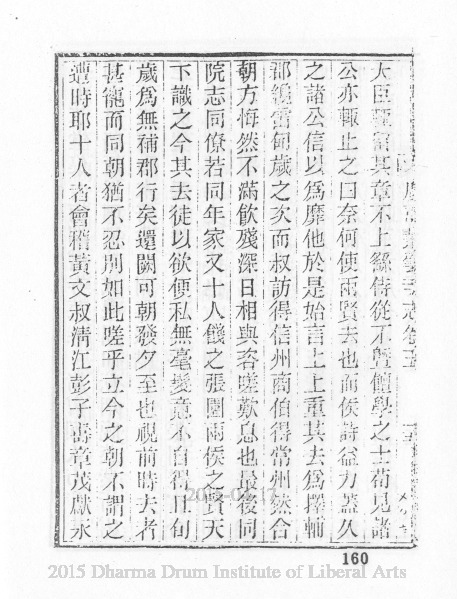 大臣䟽留其章不上餘侍從不暨館學之士苟見諸
公亦輒止之曰奈何使兩賢去也而侯請益力蓋久
之諸公信以爲靡他於是始言上上重其去爲擇輔
郡纔畱旬歲之次而叔訪得信州商伯得常州然合
朝方悔然不滿飲殘深日相與咨嗟歎息也最後同
院志同僚若同年家又十人餞之張園兩侯之賢天
下識之今其去徒以欲便私無毫髮意不自得且旬
歲爲無補郡行矣還闕可朝發夕至也視前時去者
甚寵而同朝猶不忍別如此嗟乎立今之朝不謂之
遭時耶十人者會稽黃文叔淸江彭子壽章茂獻永
160
2015 Dharma Drum Institute of Liberal Arts